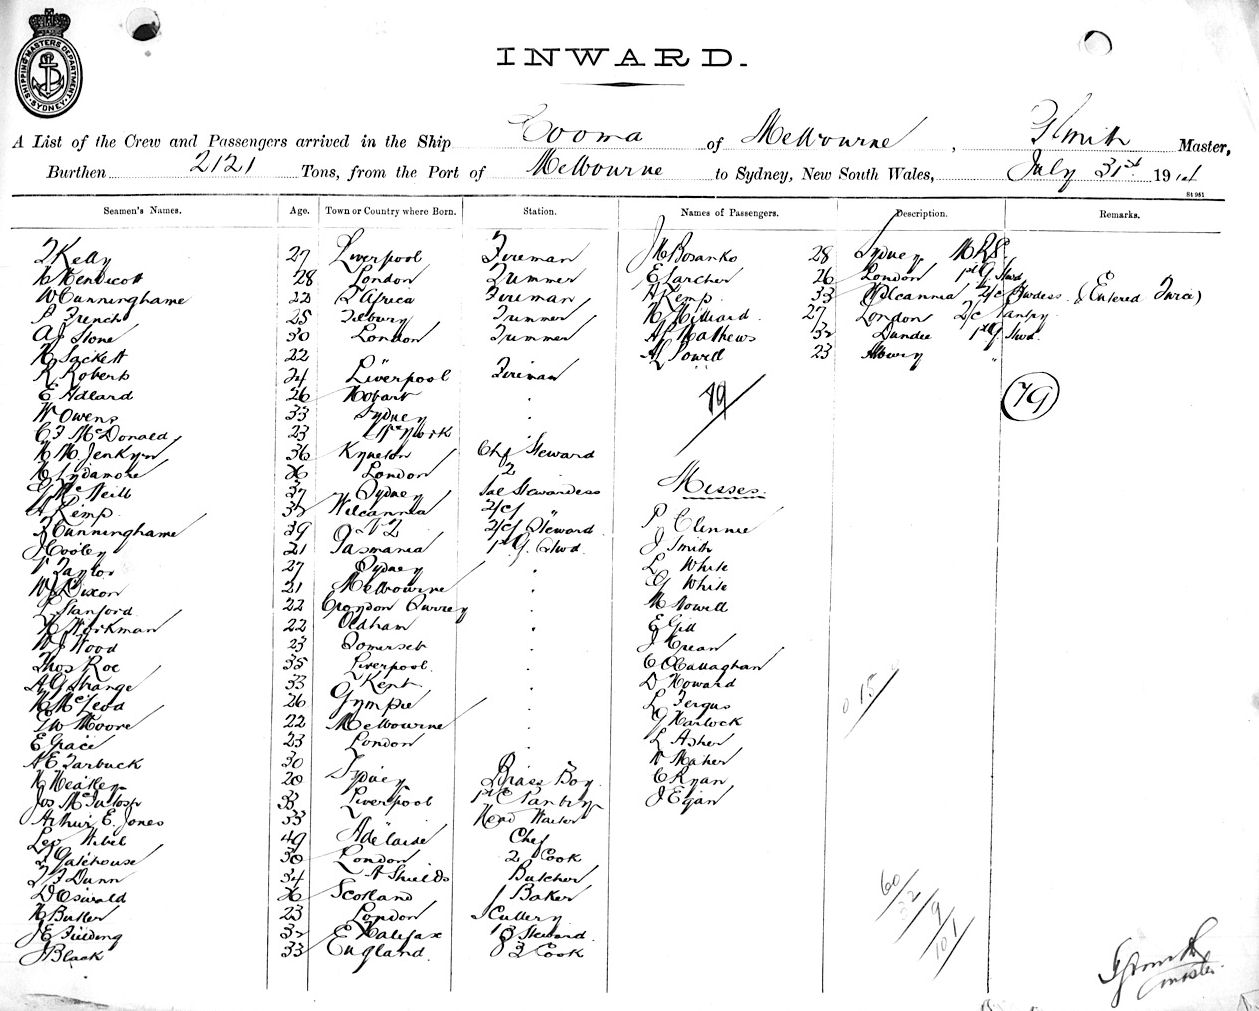 SHIPPING MASTERS DEPARTMENT
SYDNEY
INWARD.
A List of the Crew and Passengers arrived in the Ship Cooma of Melbourne, Smith Master,
Burthen 2121 Tons, from the Port of Melbourne to Sydney, New South Wales, July 31st 19
Seamen's Names. Age. Town or Country where Born. Station. Names of Passengers. Description. Remarks.
Kelly 27 Liverpool Fireman J Bosanko 28 Sydney
28 London Trimmer E Larcher 26 London 1st G Stwd
W Cunninghame 22 S Africa Fireman A Kemp 33 Wilcannia 2/c Stwdess (Entered Twice)
P French 25 Tilbury Trimmer H Hilliard 27 London 2/c Pantry
A J Stone 30 London Trimmer A P Mathews 32 Dundee 1st G Stwd.
H Sackett 22 " A L Powell 23 "
R Roberts 24 Liverpool Fireman
E Adland 26 Hobart "
W Owens 33 Sydney "
C F McDonald 23 New York
H M Jenkyn 36 Kyneton Chf Steward
H Lydamore London 2
G McNeill 37 Sydney Sal Stewardess
A Kemp 33 Wilcannia 2/c "
F Cunninghame 39 N Z 2/c Steward
J Cooley 21 Tasmania 1st G. Stwd.
V Taylor 27 Sydney "
W J Dixon 21 Melbourne "
L Stanford 22 Croydon Surrey "
H Workman 22 Oldham "
W J Wood 23 Somerset "
Thos Roe 35 Liverpool "
A G Strange 33 Kent "
H McLeod 26 Gympie "
G W Moore 22 Melbourne "
E Grace 23 London "
A E Tarbuck 30 "
H Heatley 20 Sydney Brass Boy
Jos McIntosh 33 Liverpool 1st C Pantry
Arthur E. Jones 33 " Head Waiter
Leo 49 Adelaide Chef
Gatehouse 30 London 2 Cook
T F Dunn 34 N Shields Butcher
D Oswald Scotland 1 Baker
H Butler 23 London Scullery
J E Fielding 32 Halifax Steward
J Black 33 England. 3 Cook
79
79
Misses.
P Clennie
J Smith
L White
G White
M Nowell
E Gill
J Crean
C O'Callaghan
D Howard
L Fergus
G Harlock
L Asher
V Maher
C Ryan
J Egan
15
60
32
9
101
master.